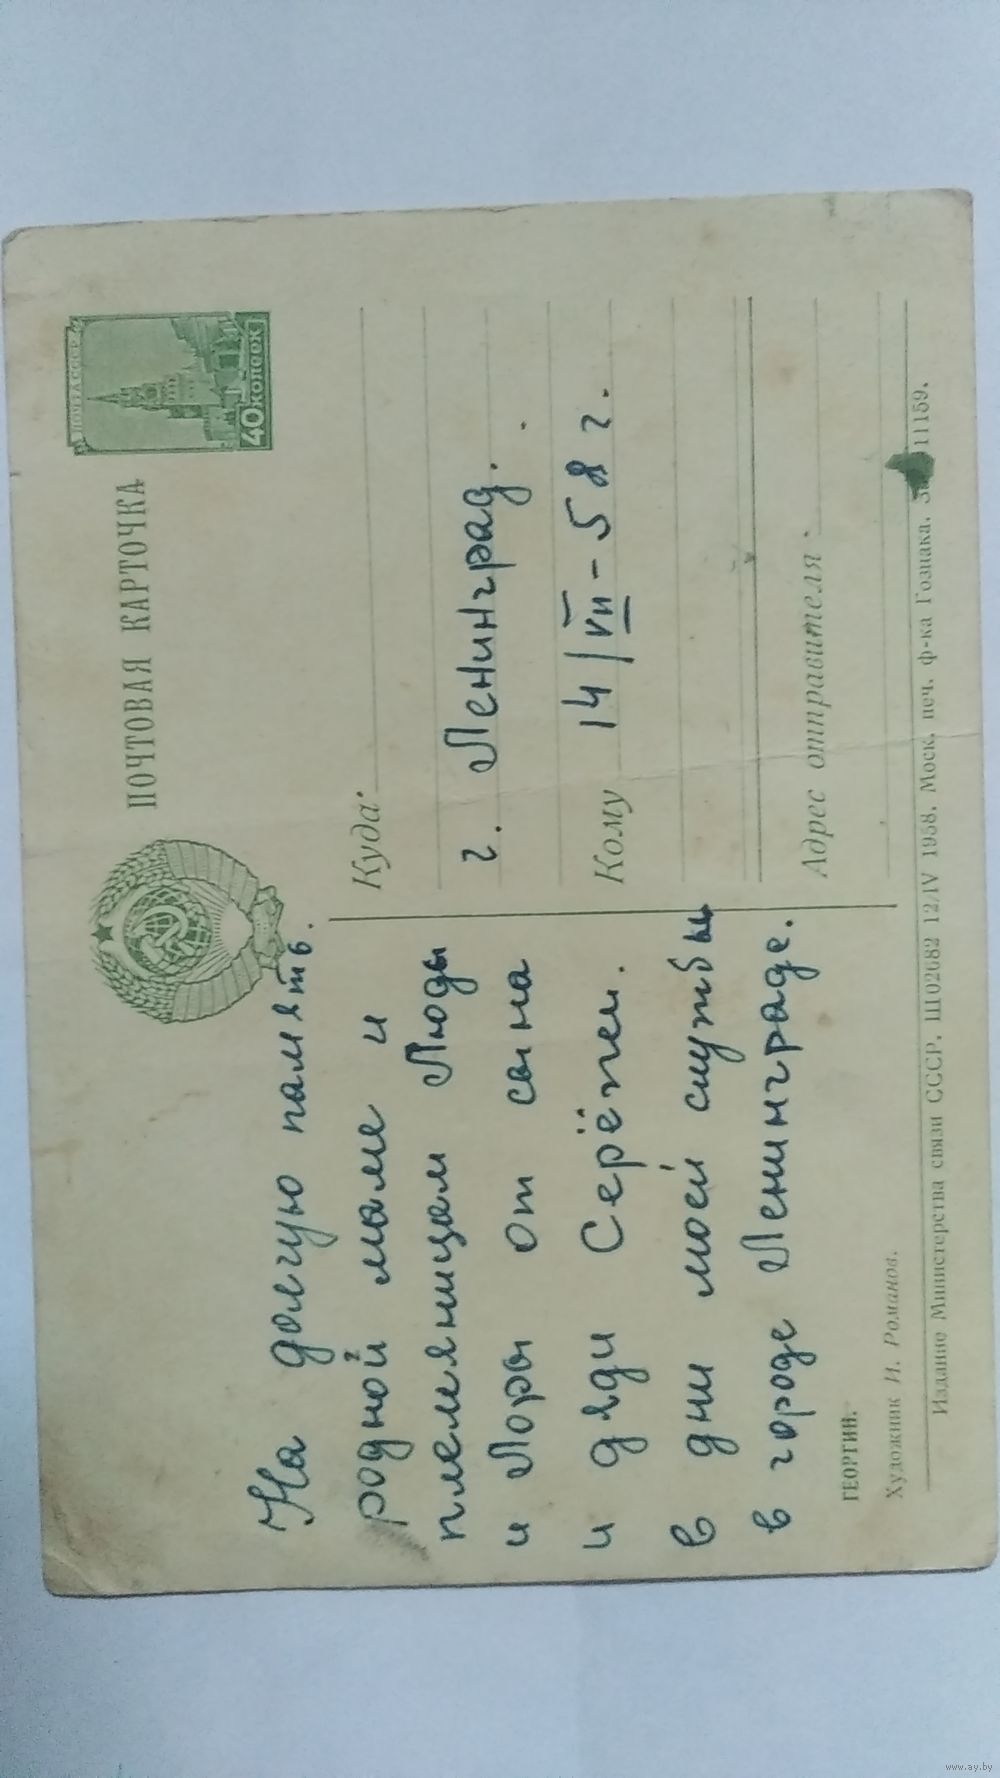 ПОЧТОВАЯ КАРТОЧКА
ПОЧТА СССР
40 КОПЕЕК
На долгую память.
родной маме и
племянницам Люды
и Лоры от сына
и дяди Серёжи.
в дни моей службы
в городе Ленинграде.
Куда
г. Ленинград.
Кому 14/VII-58 г.
Адрес отправителя
ГЕОРГИН.
Художник И. Романов.
Издание Министерства связи СССР. Ш02682 12/IV 1958. Моск. печ. ф-ка Гознака. 11159.
www.ay.by